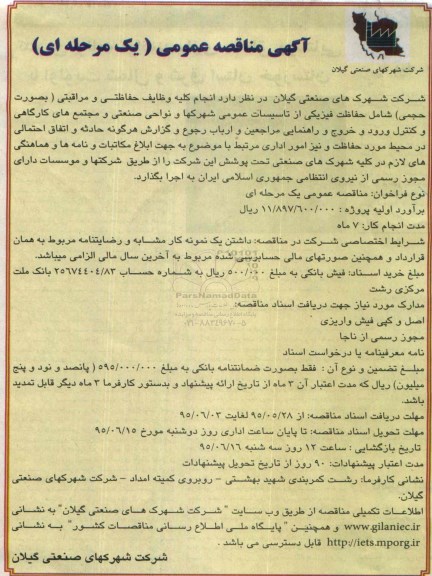 شرکت شهرکهای صنعتی گیلان
آگهی مناقصه عمومی ( یک مرحله ای)
شرکت شهرک های صنعتی گیلان در نظر دارد انجام کلیه وظایف حفاظتی و مراقبتی ( بصورت
حجمی) شامل حفاظت فیزیکی از تاسیسات عمومی شهرکها و نواحی صنعتی و مجتمع های کارگاهی
و کنترل ورود و خروج و راهنمایی مراجعین و ارباب رجوع و گزارش هرگونه حادثه و اتفاق احتمالی
در محیط مورد حفاظت و نیز امور اداری مرتبط با موضوع به جهت ابلاغ مکاتبات و نامه ها و هماهنگی
های لازم در کلیه شهرک های صنعتی تحت پوشش این شرکت را از طریق شرکتها و موسسات دارای
مجوز رسمی از نیروی انتظامی جمهوری اسلامی ایران به اجرا بگذارد.
نوع فراخوان: مناقصه عمومی یک مرحله ای
برآورد اولیه پروژه : ۱۱/۸۹۷/۶۰۰/۰۰۰ ریال
مدت انجام کار: ۷ ماه
شرایط اختصاصی شرکت در مناقصه: داشتن یک نمونه کار مشابه و رضایتنامه مربوط به همان
قرارداد و همچنین صورتهای مالی حسابرسی شده مربوط به آخرین سال مالی الزامی میباشد.
مبلغ خرید اسناد: فیش بانکی به مبلغ ۵۰۰/۰۰۰ ریال به شماره حساب ۲۵۶۷۴۴۰۴/۸۳ بانک ملت
مرکزی رشت
مدارک مورد نیاز جهت دریافت اسناد مناقصه:
اصل و کپی فیش واریزی
مجوز رسمی از ناجا
نامه معرفینامه یا درخواست اسناد
مبلغ تضمین و نوع آن : فقط بصورت ضمانتنامه بانکی به مبلغ ۵۹۵/۰۰۰/۰۰۰ ( پانصد و نود و پنج
میلیون) ریال که مدت اعتبار آن ۳ ماه از تاریخ ارائه پیشنهاد و بدستور کارفرما ۳ ماه دیگر قابل تمدید
باشد.
مهلت دریافت اسناد مناقصه: از ۹۵/۰۵/۲۸ لغایت ۹۵/۰۶/۰۳
مهلت تحویل اسناد مناقصه: تا پایان ساعت اداری روز دوشنبه مورخ ۹۵/۰۶/۱۵
تاریخ بازگشایی : ساعت ۱۲ روز سه شنبه ۹۵/۰۶/۱۶
مدت اعتبار پیشنهادات: ۹۰ روز از تاریخ تحویل پیشنهادات
نشانی کارفرما: رشت کمربندی شهید بهشتی - روبروی کمیته امداد - شرکت شهرکهای صنعتی
گیلان.
اطلاعات تکمیلی مناقصه از طریق وب سایت " شرکت شهرک های صنعتی گیلان" به نشانی
www.gilaniec.ir و همچنین " پایگاه ملی اطلاع رسانی مناقصات کشور" به نشانی
http://iets.mporg.ir قابل دسترسی می باشد .
شرکت شهرکهای صنعتی گیلان
ParsNamadData
۰۲۱-۸۸۳۴۹۶۷۰-۵